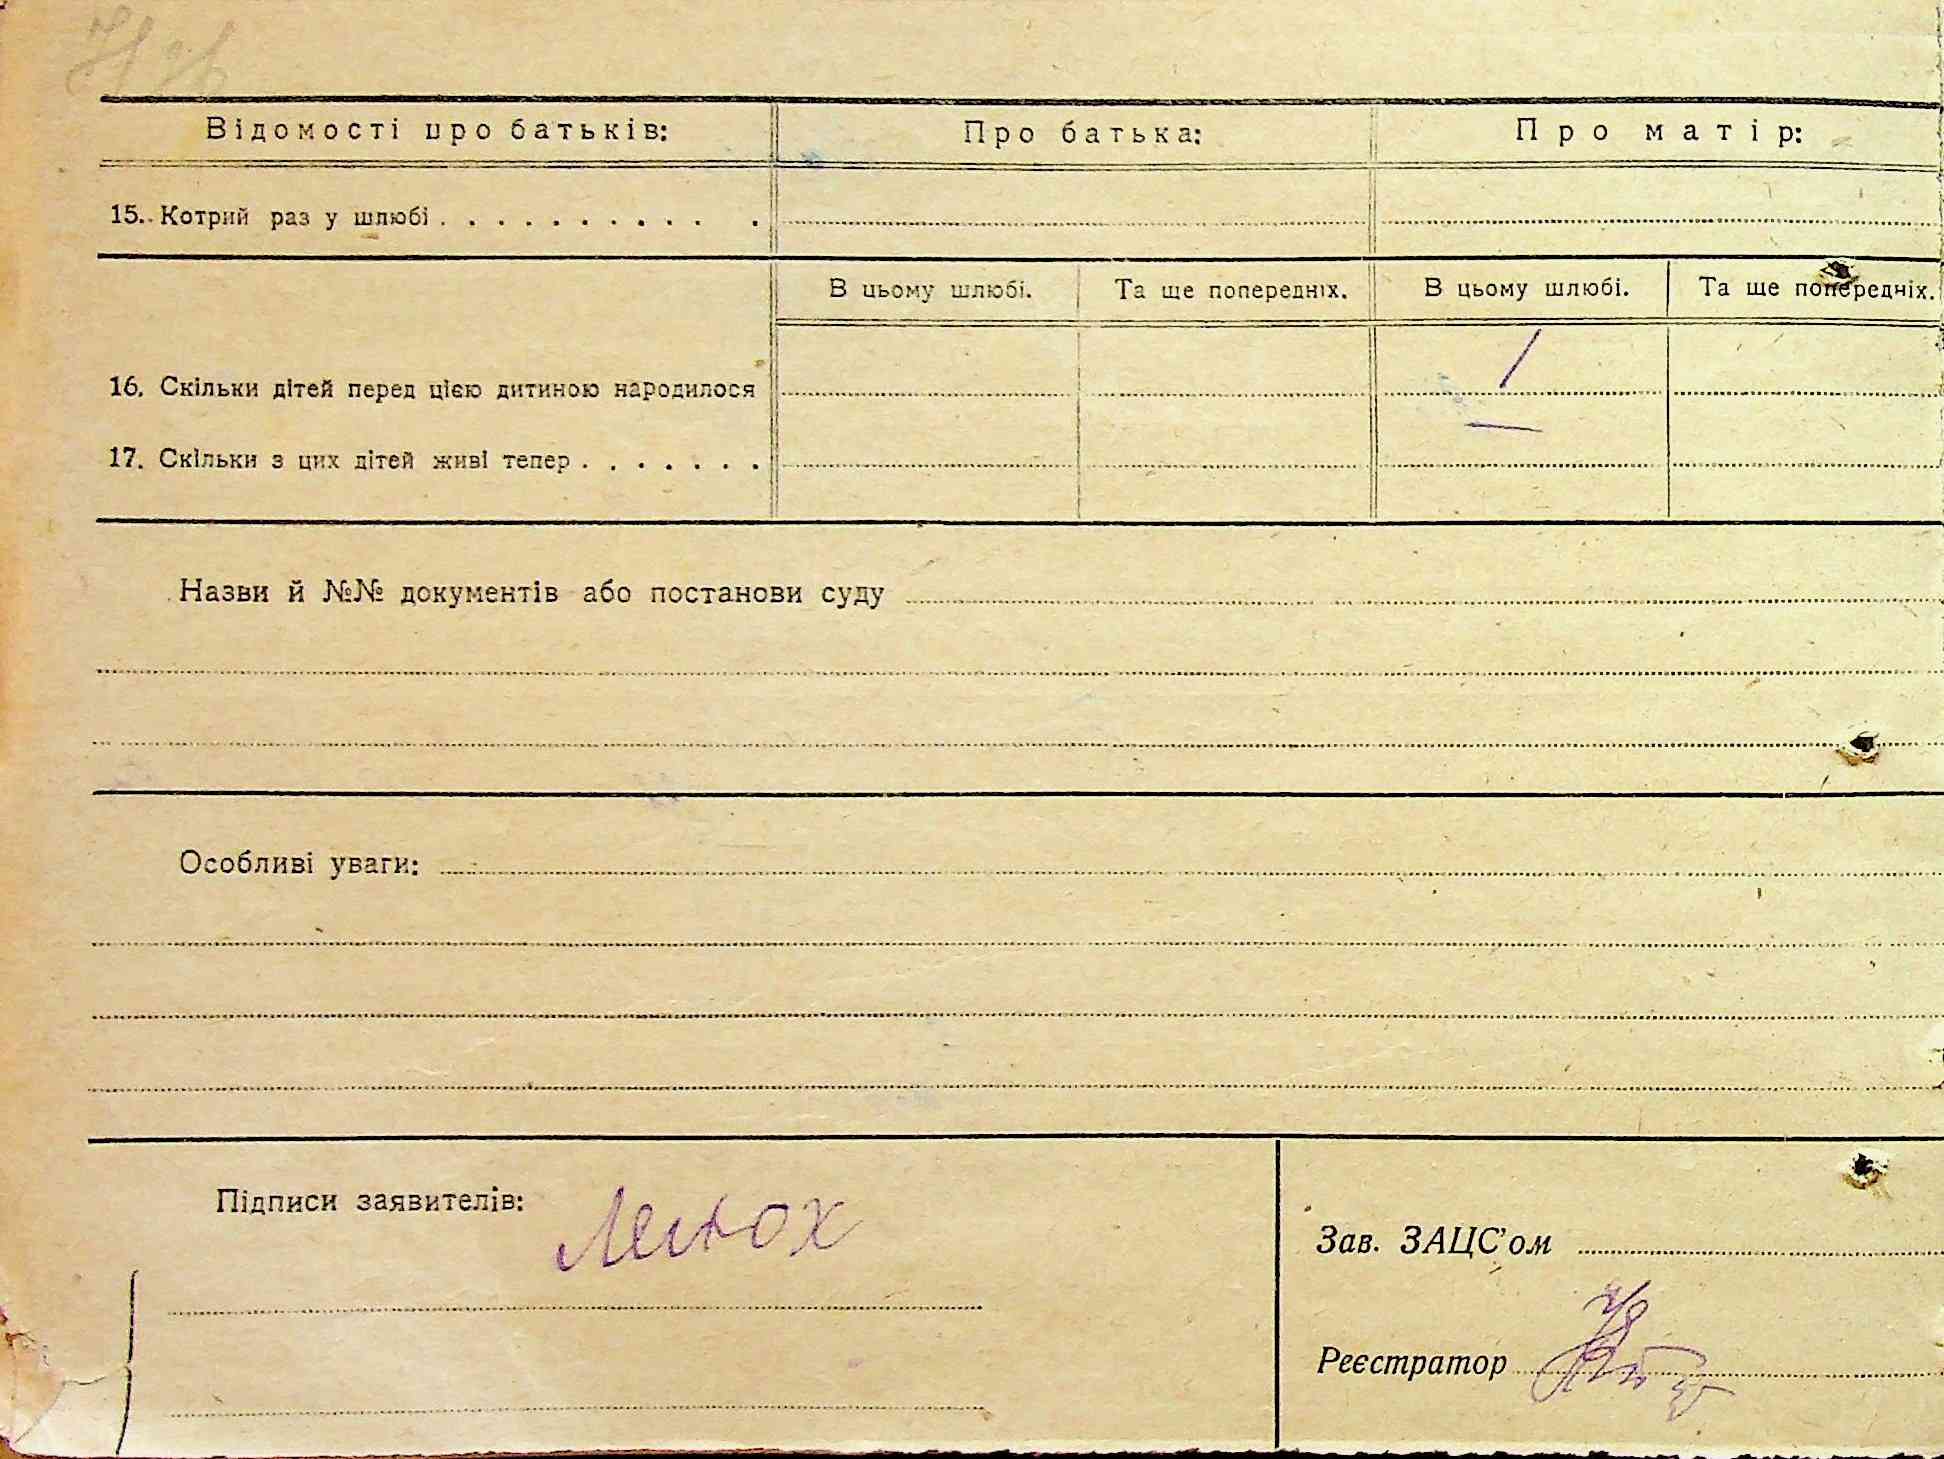 Відомості про батьків: Про батька: Про матір:
15. Котрий раз у шлюбі . . . . . . . . . . .
В цьому шлюбі. Та ще попередніх. В цьому шлюбі. Та ще попередніх.
16. Скільки дітей перед цією дитиною народилося /
17. Скільки з цих дітей живі тепер . . . . . . . —
Назви й №№ документів або постанови суду
Особливі уваги:
Підписи заявителів:
Зав. ЗАЦС'ом
Реєстратор